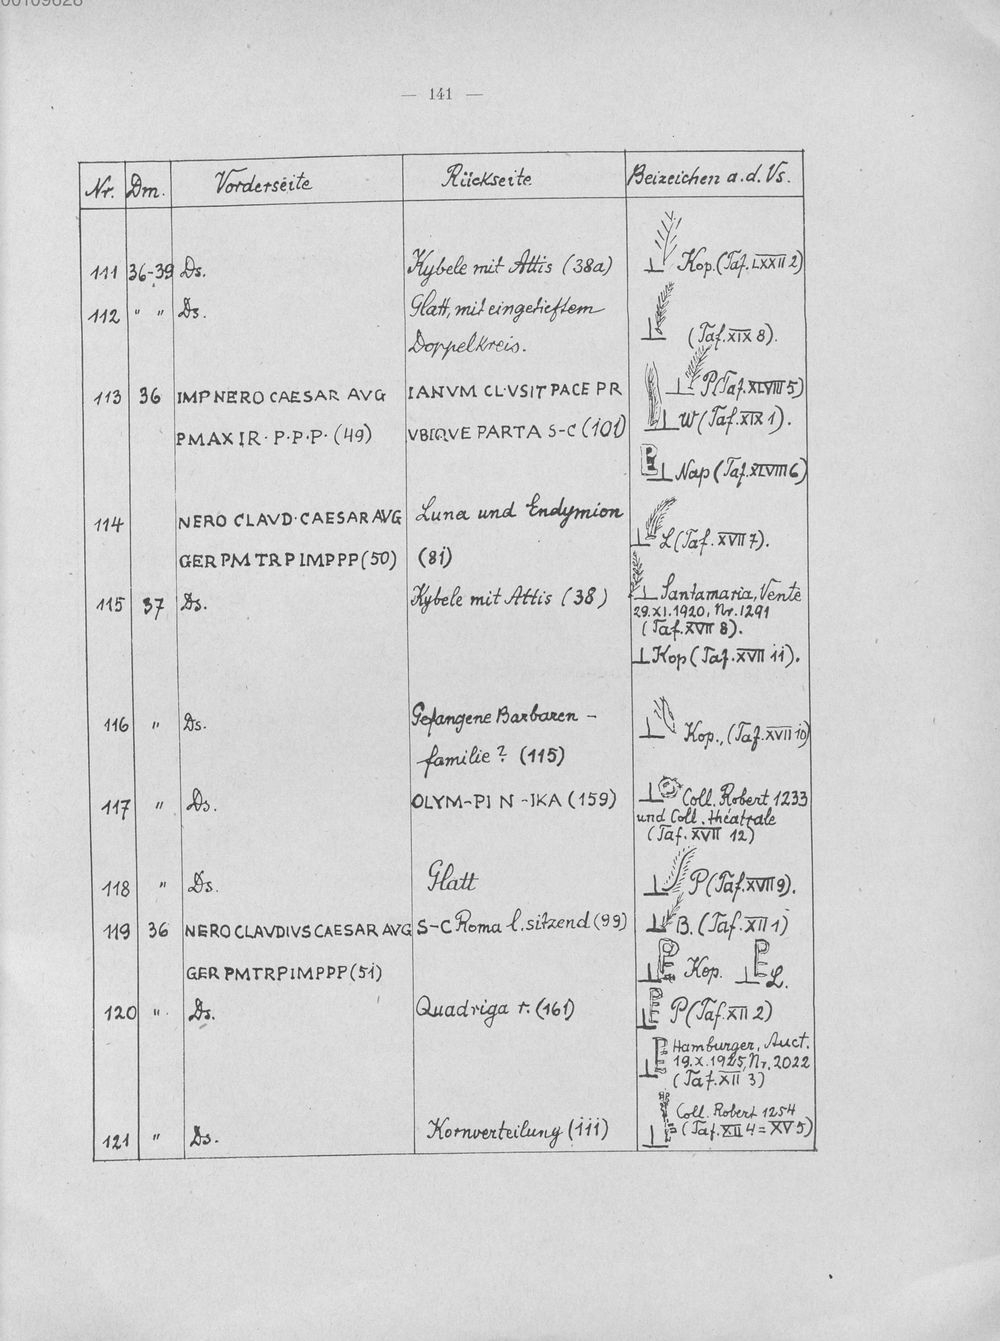 — 141 —
Nr. Dm. Vorderseite Rückseite Beizeichen a.d. Vs.
111 36-39 Ds. Kybele mit Attis (38a) Kop. (Taf. LXXII 2)
112 " " Ds. Glatt, mit eingetieftem
Doppelkreis. (Taf. XIX 8).
113 36 IMP NERO CAESAR AVG IANVM CLVSIT PACE PR P (Taf. XLVIII 5)
PMAX IR · P·P·P· (49) VBIQVE PARTA S-C (101) W (Taf. XIX 1).
Nap (Taf. XLVIII 6)
114 NERO CLAVD·CAESAR AVG Luna und Endymion
GER PM TR P IMP PP (50) (81) L (Taf. XVII 7).
115 37 Ds. Kybele mit Attis (38) Santamaria, Vente
29.XI.1920, Nr. 1291
(Taf. XVII 8).
Kop (Taf. XVII 11).
116 " Ds. Gefangene Barbaren-
familie? (115) Kop., (Taf. XVII 10)
117 " Ds. OLYM-PI N -IKA (159) Coll. Robert 1233
und Coll. théatrale
(Taf. XVII 12)
118 " Ds. Glatt P (Taf. XVII 9).
119 36 NERO CLAVDIVS CAESAR AVG S-C Roma l. sitzend (99) B. (Taf. XII 1)
GER PM TR P IMP PP (51) Kop. L.
120 " Ds. Quadriga r. (161) P (Taf. XII 2)
Hamburger, Auct.
19.X.1925, Nr. 2022
(Taf. XII 3)
Coll. Robert 1254
121 " Ds. Kornverteilung (111) (Taf. XII 4 = XV 5)